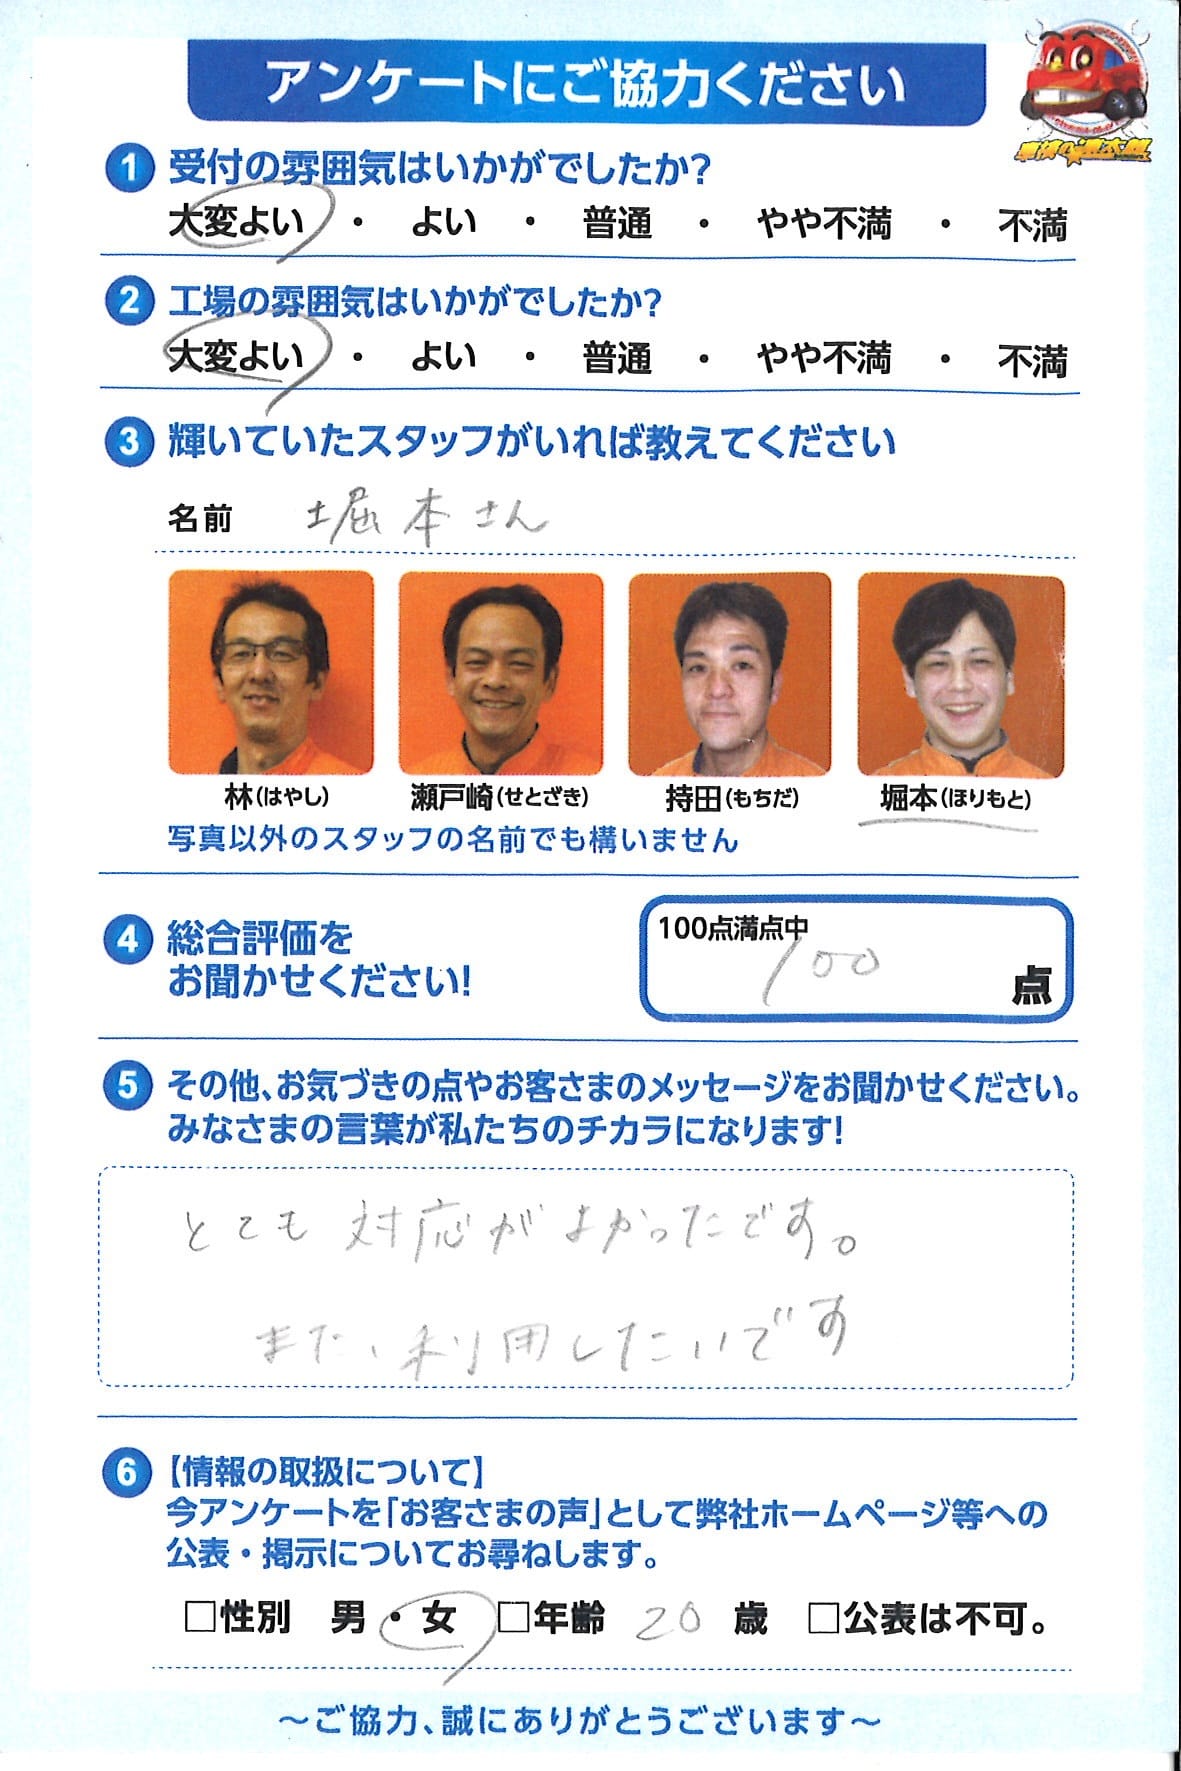 アンケートにご協力ください
1 受付の雰囲気はいかがでしたか?
大変よい ・ よい ・ 普通 ・ やや不満 ・ 不満
2 工場の雰囲気はいかがでしたか?
大変よい ・ よい ・ 普通 ・ やや不満 ・ 不満
3 輝いていたスタッフがいれば教えてください
名前 堀本さん
林(はやし) 瀬戸崎(せとざき) 持田(もちだ) 堀本(ほりもと)
写真以外のスタッフの名前でも構いません
4 総合評価を
お聞かせください!
100点満点中
100
点
5 その他、お気づきの点やお客さまのメッセージをお聞かせください。
みなさまの言葉が私たちのチカラになります!
とても対応がよかったです。
また、利用したいです
6 【情報の取扱について】
今アンケートを「お客さまの声」として弊社ホームページ等への
公表・掲示についてお尋ねします。
□性別 男・女 □年齢 20 歳 □公表は不可。
～ご協力、誠にありがとうございます～